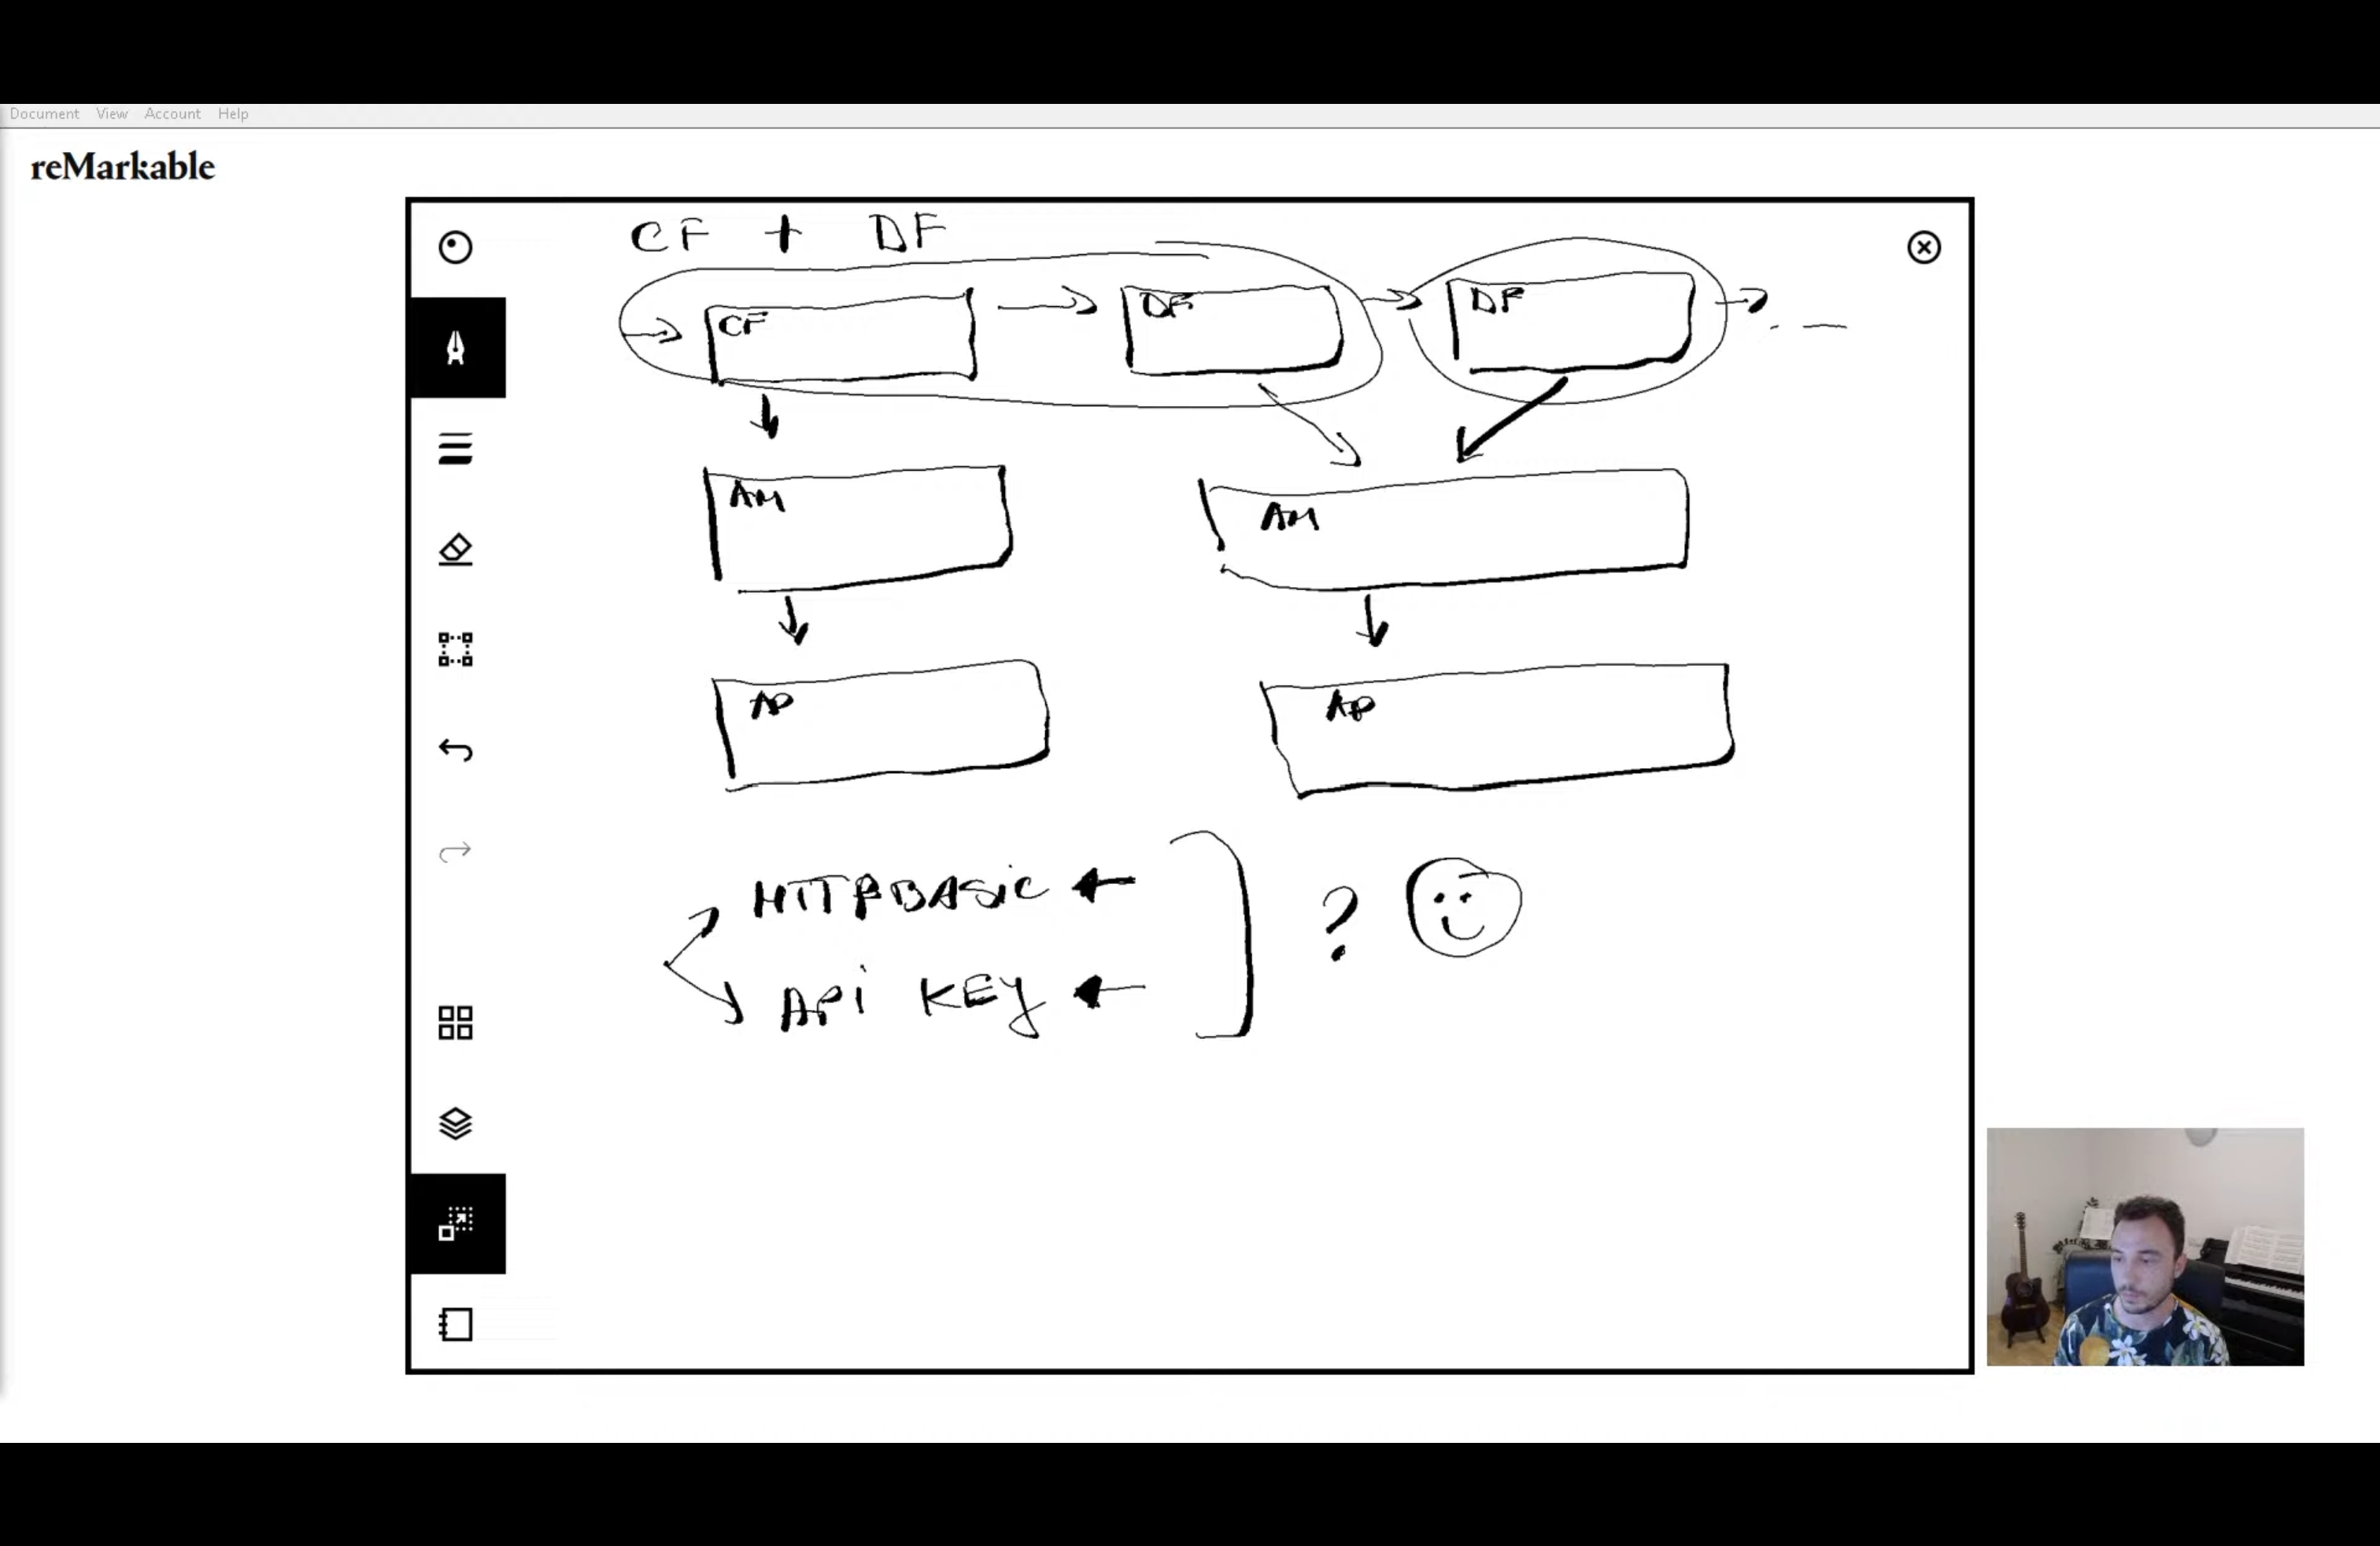 Document View Account Help
reMarkable
CF + DF
CF
DF
DF
AM
AM
AP
AP
HTTP BASIC
API KEY
?